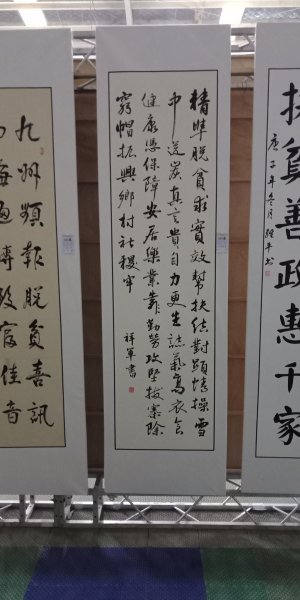 扶貧善政惠千家
庚子年冬月
精準脫貧求實效幫扶結對顯情操雪
中送炭真言貴自力更生誌氣高衣食
健康憑保障安居樂業靠勤勞攻堅拔寨除
窮帽振興鄉村社稷牢
祥軍書
九州頻報脫貧喜訊
海迅傳致富佳音